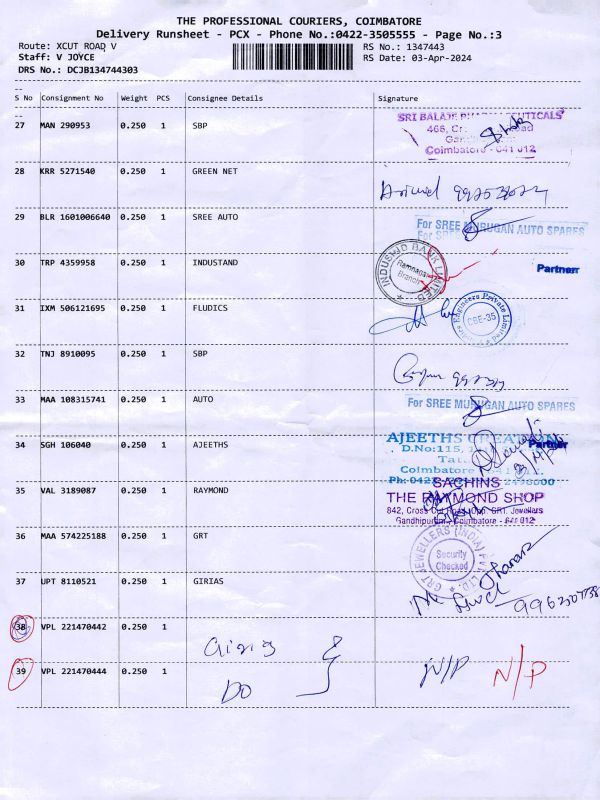 THE PROFESSIONAL COURIERS, COIMBATORE
Delivery Runsheet - PCX - Phone No.:0422-3505555 - Page No.:3
Route: XCUT ROAD V RS No.: 1347443
Staff: V JOYCE RS Date: 03-Apr-2024
DRS No.: DCJB134744303
--
S No Consignment No Weight PCS Consignee Details Signature
--
27 MAN 290953 0.250 1 SBP
SRI BALAJE
466,
Coimbatore - 641 012
28 KRR 5271540 0.250 1 GREEN NET
29 BLR 1601006640 0.250 1 SREE AUTO
For SREE MURUGAN AUTO SPARES
30 TRP 4359958 0.250 1 INDUSTAND
INDUSIND BANK LIMITED
Branch
Partner
31 IXM 506121695 0.250 1 FLUDICS
Engineers Private Limited
CBE-35
32 TNJ 8910095 0.250 1 SBP
33 MAA 108315741 0.250 1 AUTO
For SREE MURUGAN AUTO SPARES
Partner
34 SGH 106040 0.250 1 AJEETHS
AJEETHS CREATION
D.No:115,
Coimbatore
35 VAL 3189087 0.250 1 RAYMOND
SACHINS
THE RAYMOND SHOP
842, Cross Cut Road, Opp. GRT. Jewellers
Gandhipuram, Coimbatore - 641 012
36 MAA 574225188 0.250 1 GRT
GRT JEWELLERS (INDIA) PVT. LTD.
Security
Checked
37 UPT 8110521 0.250 1 GIRIAS
38 VPL 221470442 0.250 1 Girias
39 VPL 221470444 0.250 1 DO N/P N/P